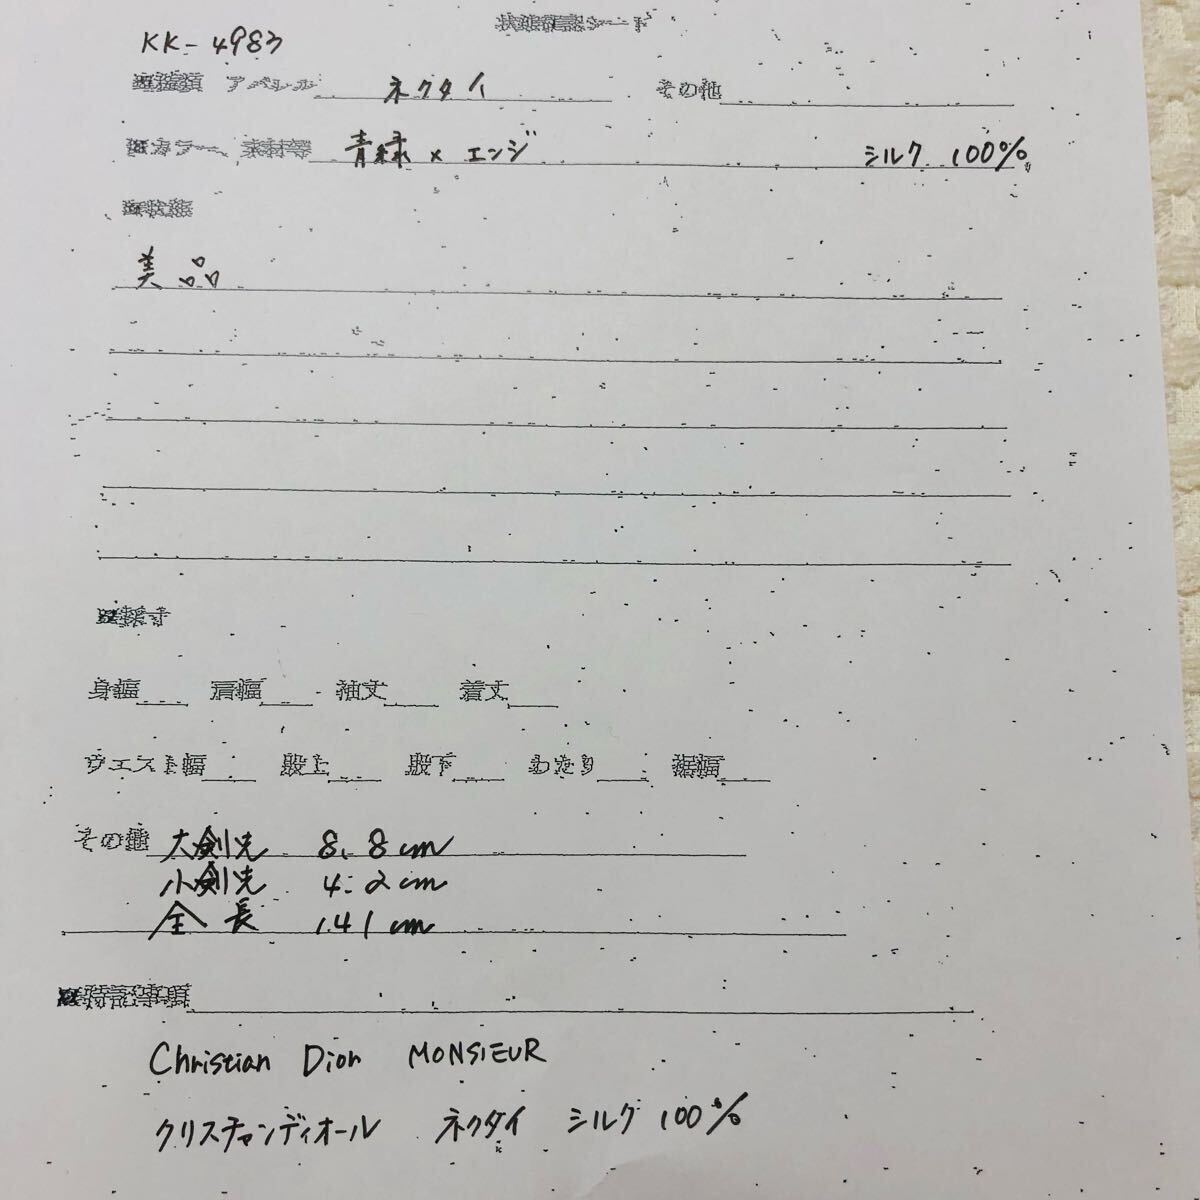 状態確認シート
KK-4983
種類 アパレル ネクタイ その他
カラー、素材等 青緑×エンジ シルク 100%
状態
美品
採寸
身幅 肩幅 袖丈 着丈
ウエスト幅 股上 股下 わたり 裾幅
その他 大剣先 8.8cm
小剣先 4.2cm
全長 141cm
特記事項
Christian Dior MONSIEUR
クリスチャンディオール ネクタイ シルク 100%